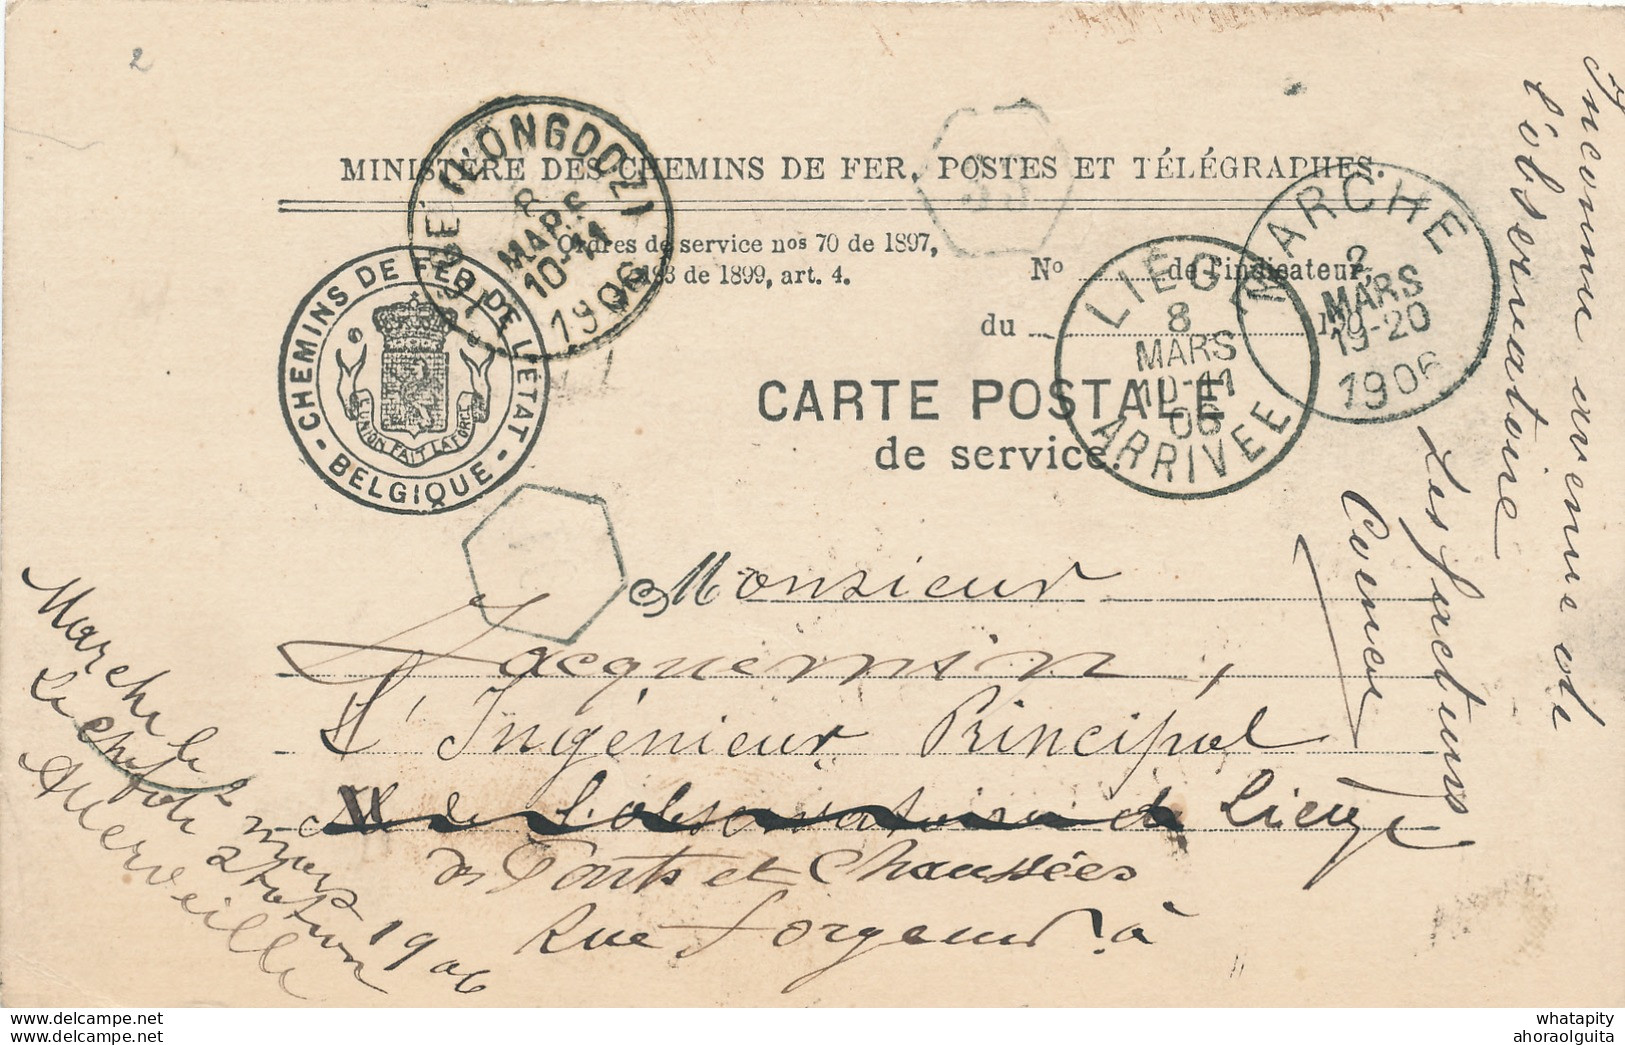 2
MINISTÈRE DES CHEMINS DE FER, POSTES ET TÉLÉGRAPHES.
Ordres de service nos 70 de 1897,
193 de 1899, art. 4.
No de l'indicateur,
du
CARTE POSTALE
de service.
CHEMINS DE FER DE L'ÉTAT
- BELGIQUE -
L'UNION FAIT LA FORCE
8
MARS
10-11
1906
LIEGE
8
MARS
10-11
06
ARRIVEE
MARCHE
2
MARS
19-20
1906
Monsieur
Jacquemin,
L'Ingénieur Principal
de l'observatoire de Liège
des Ponts et Chaussées
Rue Forgeur à
Marche le 2 mars 1906
Le chef de station
Allerveille
Inconnu avenue de
l'observatoire
Les facteurs
www.delcampe.net
whatapity
ahoraolguita